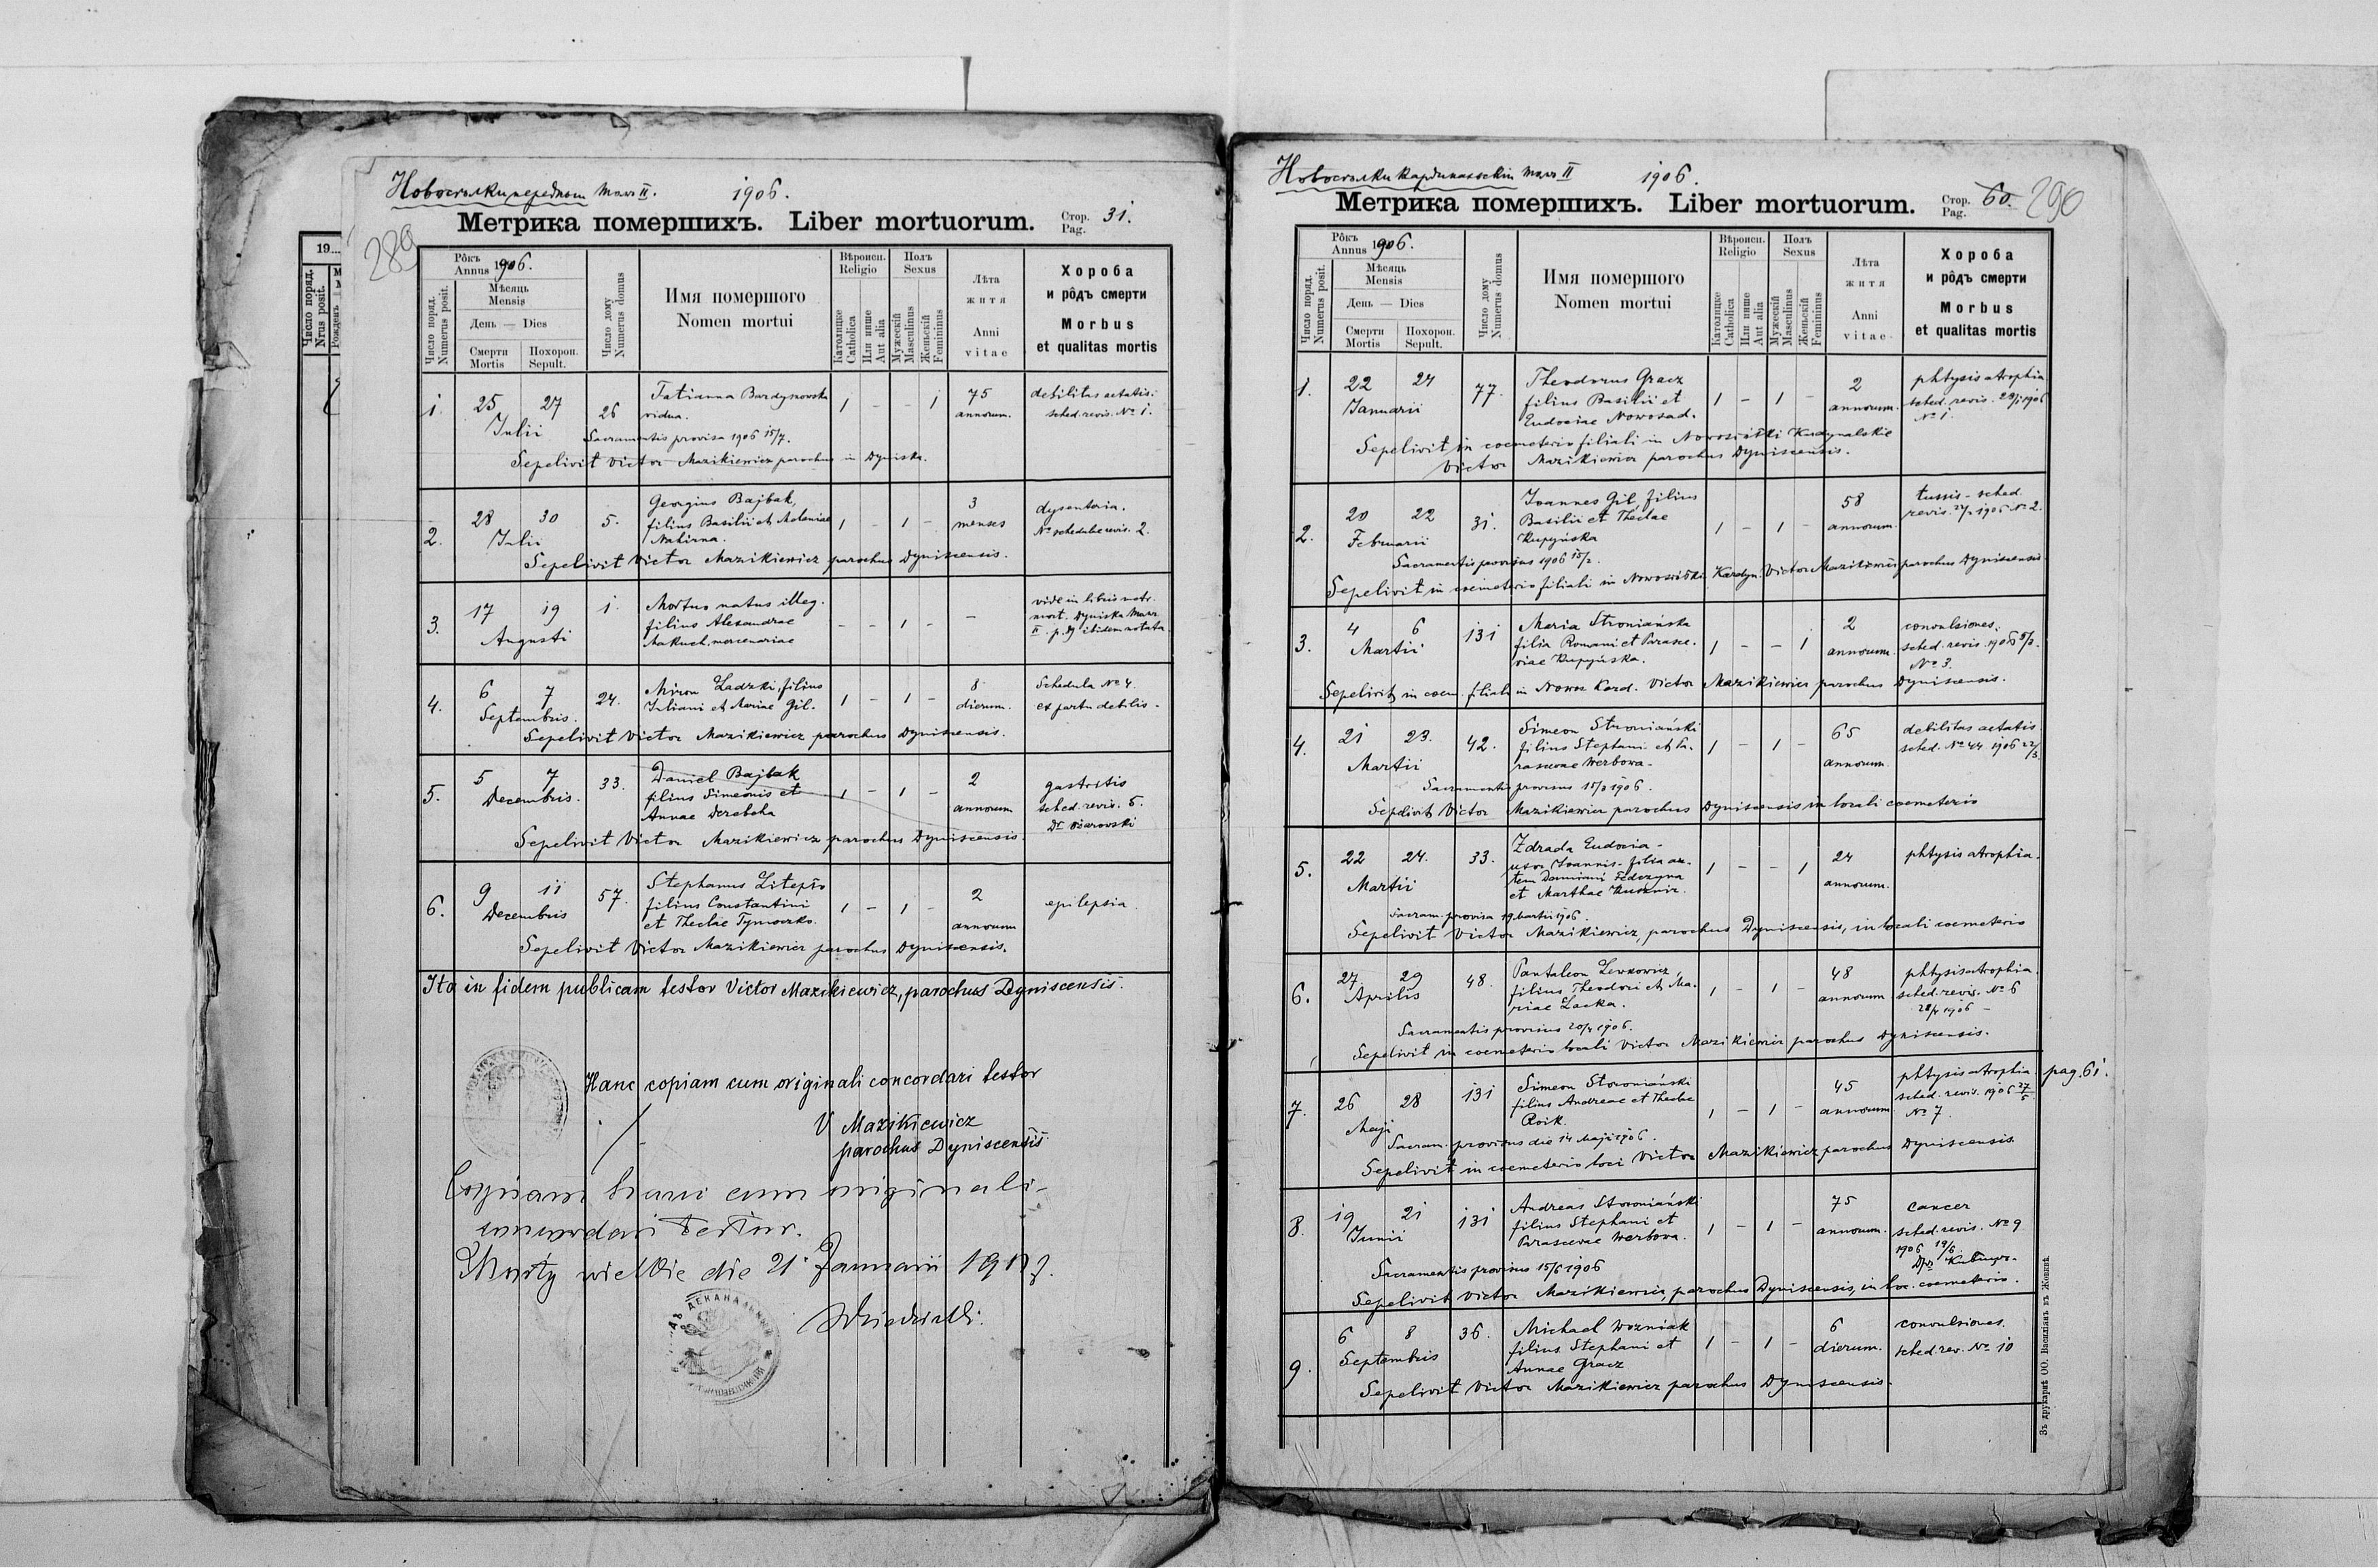 Новосѣлки передным Том II. 1906.
289
Метрика помершихъ. Liber mortuorum. Стор. Pag. 31.
19...
Число поряд. Nrus posit.
Рôкъ Annus 1906.
Мѣсяць Mensis
День — Dies
Смерти Mortis
Похорон. Sepult.
Число поряд. Numerus posit.
Число дому Numerus domus
Имя помершого
Nomen mortui
Вѣроисп. Religio
Католицке Catholica
Или инше Aut alia
Полъ Sexus
Мужескій Masculinus
Женьскій Femininus
Лѣта житя
Anni vitae
Хороба и рôдъ смерти
Morbus et qualitas mortis
1. 25 27 Julii 26 Tatianna Bardynowska 1 - - 1 75 annorum. debilitas aetatis.
vidua. sched. revis. No 1.
Sacramentis provisa 1906 15/7.
Sepelivit Victor Mazikiewicz parochus in Dyniska.
2. 28 30 Julii 5. Georgius Bajbak, 1 - 1 - 3 menses dysenteria.
filius Basilii et Melaniae No schedulae revis. 2.
Sepelivit Victor Mazikiewicz parochus Dyniscensis.
3. 17 19 Augusti 1. Mortuo natus illeg. - - 1 - - vide in libris metr.
filius Alexandrae mort. Dyniska Tom
Makuch, mercenariae II. p. itidem notata
4. 6 7 Septembris. 24. Miron Ladzki, filius 1 - 1 - 8 dierum. Schedula No 4.
Juliani et Mariae Gil. ex partu debilis -
Sepelivit Victor Mazikiewicz parochus Dyniscensis.
5. 5 7 Decembris. 33. Daniel Bajbak 1 - 1 - 2 annorum gastritis
filius Simeonis et sched. revis. 5.
Annae Derebcha Dr Ożarowski
Sepelivit Victor Mazikiewicz parochus Dyniscensis.
6. 9 11 Decembris 57. Stephanus Litepło 1 - 1 - 2 annorum epilepsia.
filius Constantini
et Theclae Tymoczko.
Sepelivit Victor Mazikiewicz parochus Dyniscensis.
Ita in fidem publicam testor Victor Mazikiewicz, parochus Dyniscensis.
Hanc copiam cum originali concordari testor
V Mazikiewicz
parochus Dyniscensis
Copiam hanc cum originali
concordari testor.
Mosty wielkie die 21 Januarii 1907.
ДЕКАНАЛЬНЫЙ
Новосѣлки Кардинальскіи Том II 1906.
Метрика помершихъ. Liber mortuorum. Стор. Pag. 60. 290
Рôкъ Annus 1906.
Мѣсяць Mensis
День — Dies
Смерти Mortis
Похорон. Sepult.
Число поряд. Numerus posit.
Число дому Numerus domus
Имя помершого
Nomen mortui
Вѣроисп. Religio
Католицке Catholica
Или инше Aut alia
Полъ Sexus
Мужескій Masculinus
Женьскій Femininus
Лѣта житя
Anni vitae
Хороба и рôдъ смерти
Morbus et qualitas mortis
1. 22 24 Januarii 77. Theodorus Gracz 1 - 1 - 2 annorum. phtysis atrophia
filius Basilii et sched. revis. 23/1 1906
Eudociae Nowosad. No 1.
Sepelivit in coemeterio filiali in Nowosiółki Kardynalskie
Victor Mazikiewicz parochus Dyniscensis.
2. 20 22 Februarii 31. Joannes Gil, filius 1 - 1 - 58 annorum. tussis - sched.
Basilii et Theclae revis. 1906 No 2.
Kupyńska
Sacramentis provisus 1906 15/2.
Sepelivit in coemeterio filiali in Nowosiółki Kardyn. Victor Mazikiewicz parochus Dyniscensis
3. 4 6 Martii 131 Maria Stroniańska 1 - - 1 2 annorum. convulsiones.
filia Romani et Parasce- sched. revis. 1906 5/3.
viae Kupyńska. No 3.
Sepelivit in coem. filiali in Nowos Kard. Victor Mazikiewicz parochus Dyniscensis.
4. 21 23. Martii 42. Simeon Stroniański 1 - 1 - 65 annorum. debilitas aetatis
filius Stephani et Pa- sched. No 44 1906 22/3
rascevae Werbowa.
Sacramentis provisus 15/3 1906.
Sepelivit Victor Mazikiewicz parochus Dyniscensis in locali coemeterio
5. 22 24. Martii 33. Zdrada Eudocia - 1 - - 1 24 annorum. phtysis atrophia.
uxor Joannis - filia au-
tem Damiani Fedczyna
et Marthae Kusznir.
Sacram. provisa 19 Martii 1906.
Sepelivit Victor Mazikiewicz, parochus Dyniscensis, in locali coemeterio
6. 27 29 Aprilis 48. Pantaleon Lewkowicz, 1 - 1 - 48 annorum phtysis atrophia.
filius Theodori et Ma- sched. revis. No 6
riae Lacka. 28/4 1906 -
Sacramentis provisus 20/4 1906.
Sepelivit in coemeterio locali Victor Mazikiewicz parochus Dyniscensis.
7. 26 28 Maji 131 Simeon Storoniański 1 - 1 - 45 annorum phtysis atrophia. pag. 61.
filius Andreae et Theclae sched. revis. 1906 27/5
Roik. No 7.
Sacram. provisus die 14 Maji 1906.
Sepelivit in coemeterio loci Victor Mazikiewicz parochus Dyniscensis
8. 19 21 Junii 131 Andreas Storoniański 1 - 1 - 75 annorum. cancer
filius Stephani et sched. revis. No 9
Parascevae Werbowa. 1906 19/6.
Sacramentis provisus 15/6 1906
Sepelivit Victor Mazikiewicz, parochus Dyniscensis, in loc. coemeterio.
9. 6 8 Septembris 36. Michael Wozniak 1 - 1 - 6 dierum. convulsiones.
filius Stephani et sched. rev. No 10
Annae Gracz
Sepelivit Victor Mazikiewicz parochus Dyniscensis.
Зъ друкарнѣ ОО. Василіанъ въ Жовквѣ